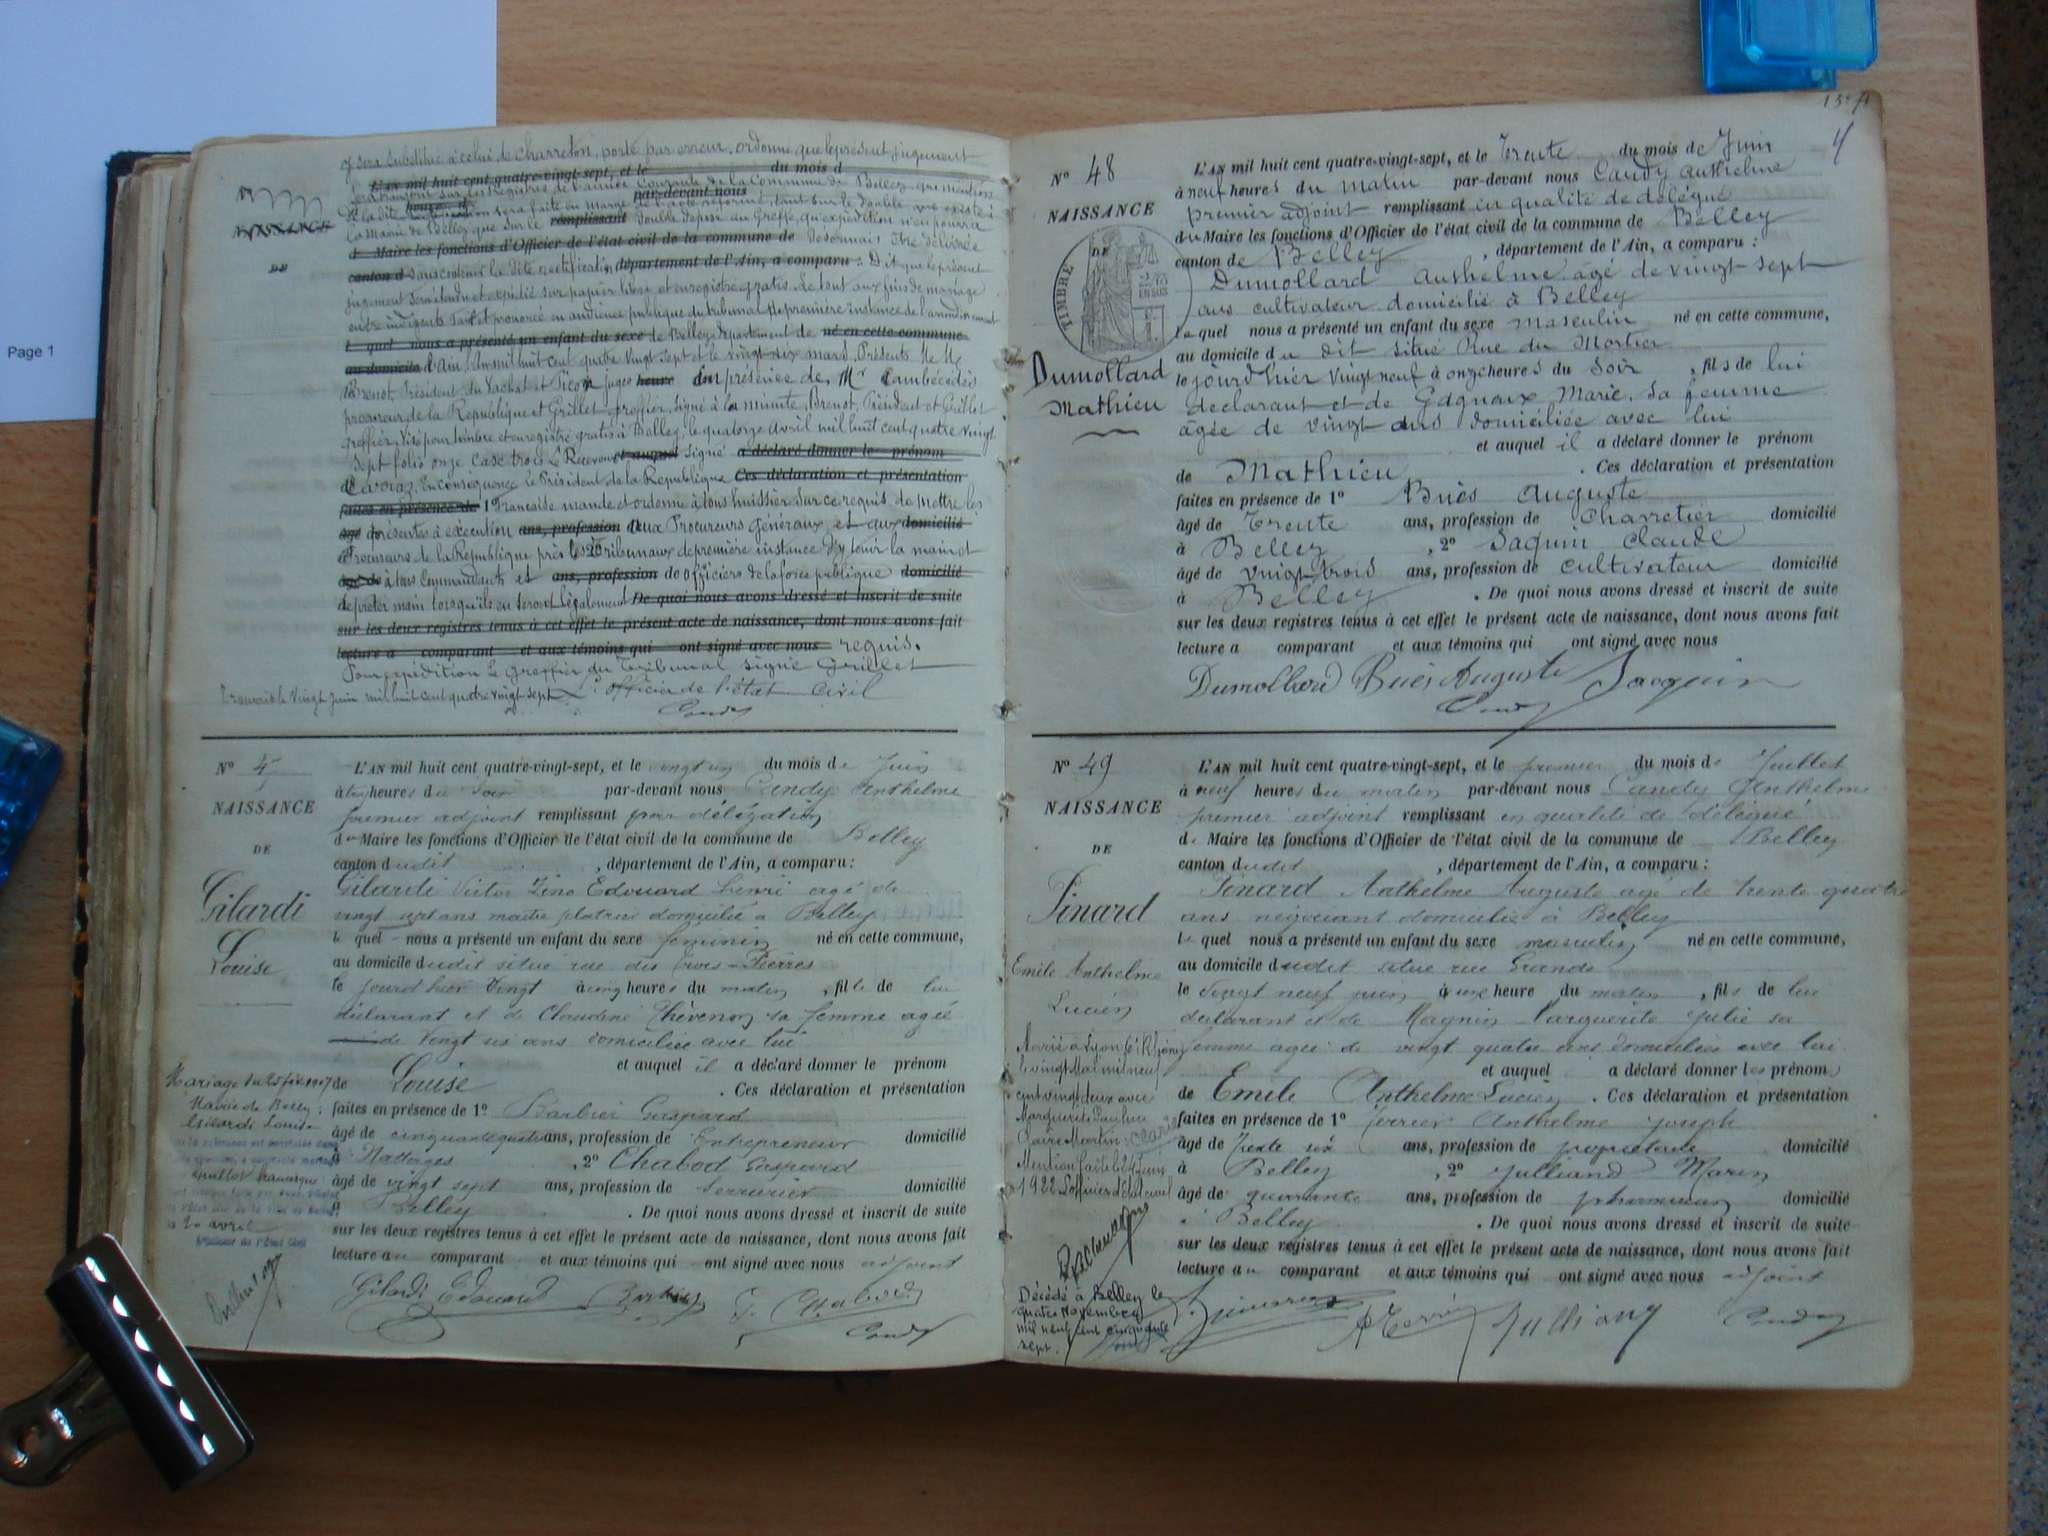 Page 1
y sera substitué à celui de Charreton, porté par erreur, ordonne que le présent jugement
L'AN mil huit cent quatre-vingt-sept, et le du mois d
sera transcrit sur les registres de l'année courante de la Commune de Belley, que mention
heure par-devant nous
de la dite rectification sera faite en marge de l'acte réformé, tant sur le double qui existe à
la mairie de Belley que sur le remplissant double déposé au Greffe, qu'expédition n'en pourra
d Maire les fonctions d'Officier de l'état civil de la commune de désormais être délivrée
canton d sans contenir la dite rectification département de l'Ain, a comparu : Dit que le présent
jugement sera et expédié sur papier libre et enregistré gratis. Le tout aux fins de mariage
entre indigents. Fait et prononcé en audience publique du tribunal de première instance de l'arrondissement
l quel nous a présenté un enfant du sexe de Belley département de né en cette commune
au domicile d l'Ain, l'an mil huit cent quatre vingt sept et le vingt six mars. Présents M. M.
Brenot, Président, du Vachat et Picot juges heure En présence de, Mr Cambécédès
procureur de la République et Grillet greffier, signé à la minute, Brenot, Président et Grillet
greffier. Visé pour timbre et enregistré gratis à Belley, le quatorze avril mil huit cent quatre vingt
sept folio onze case trois Le Receveur et auquel signé a déclaré donner le prénom
de En conséquence le Président de la République Ces déclaration et présentation
faites en présence de 1º Française mande et ordonne à tous huissiers sur ce requis de mettre les
âgé de présentes à exécution ans, profession aux Procureurs Généraux et aux domicilié
à Procureurs de la République près les 2º Tribunaux de première instance d'y tenir la main et
âgé de à tous Commandants et ans, profession de officiers de la force publique domicilié
de prêter main lorsqu'ils en seront légalement De quoi nous avons dressé et inscrit de suite
sur les deux registres tenus à cet effet le présent acte de naissance, dont nous avons fait
lecture a comparant et aux témoins qui ont signé avec nous requis.
Pour expédition Le Greffier du Tribunal signé Grillet
Transcrit le Vingt Juin mil huit cent quatre vingt sept L'officier de l'état civil
Candy
NAISSANCE
DE
Nº 47
NAISSANCE
DE
Gilardi
Louise
L'AN mil huit cent quatre-vingt-sept, et le vingt un du mois de Juin
à heures du soir par-devant nous Candy Anthelme
premier adjoint remplissant par délégation
du Maire les fonctions d'Officier de l'état civil de la commune de Belley
canton dudit , département de l'Ain, a comparu :
Gilardi Victor Zino Edouard Henri agé de
vingt sept ans maître platrier domicilié à Belley
le quel nous a présenté un enfant du sexe féminin né en cette commune,
au domicile dudit situé rue des Trois-Pierres
le jourd'hier Vingt à cinq heures du matin , fille de lui
déclarant et de Claudine Thévenon sa femme agée
de Vingt six ans domiciliée avec lui
et auquel il a déclaré donner le prénom
de Louise . Ces déclaration et présentation
faites en présence de 1º Barbier Gaspard
âgé de cinquante quatre ans, profession de Entrepreneur domicilié
à Nattages , 2º Chabod Gaspard
âgé de vingt sept ans, profession de Serrurier domicilié
à Belley . De quoi nous avons dressé et inscrit de suite
sur les deux registres tenus à cet effet le présent acte de naissance, dont nous avons fait
lecture au comparant et aux témoins qui ont signé avec nous adjoint
Gilardi Edouard Barbier G. Chabod
Candy
Mariage du 25 fév. 1907
Mairie de Belley :
Gilardi Louise
20 avril
L'Officier de l'Etat Civil
13e f
Nº 48
NAISSANCE
DE
TIMBRE
2/10 EN SUS
Dumollard
Mathieu
L'AN mil huit cent quatre-vingt-sept, et le Trente du mois de Juin
à neuf heures du matin par-devant nous Candy Anthelme
premier adjoint remplissant en qualité de délégué
du Maire les fonctions d'Officier de l'état civil de la commune de Belley
canton de Belley , département de l'Ain, a comparu :
Dumollard Anthelme agé de vingt sept
ans cultivateur domicilié à Belley
Le quel nous a présenté un enfant du sexe masculin né en cette commune,
au domicile du dit situé Rue du Mortier
le jourd'hier Vingt neuf à onze heures du Soir , fils de lui
déclarant et de Gagnoux Marie, sa femme
âgée de vingt ans domiciliée avec lui
et auquel il a déclaré donner le prénom
de Mathieu . Ces déclaration et présentation
faites en présence de 1º Buès Auguste
âgé de Trente ans, profession de Charretier domicilié
à Belley , 2º Jaquin Claude
âgé de vingt trois ans, profession de cultivateur domicilié
à Belley . De quoi nous avons dressé et inscrit de suite
sur les deux registres tenus à cet effet le présent acte de naissance, dont nous avons fait
lecture a comparant et aux témoins qui ont signé avec nous
Dumollard Buès Auguste Jacquin
Candy
Nº 49
NAISSANCE
DE
Pinard
Emile Anthelme
Lucien
L'AN mil huit cent quatre-vingt-sept, et le premier du mois de Juillet
à neuf heures du matin par-devant nous Candy Anthelme
premier adjoint remplissant en qualité de délégué
du Maire les fonctions d'Officier de l'état civil de la commune de Belley
canton dudit , département de l'Ain, a comparu :
Pinard Anthelme Auguste agé de trente quatre
ans négociant domicilié à Belley
le quel nous a présenté un enfant du sexe masculin né en cette commune,
au domicile dudit situé rue Grande
le Vingt neuf juin à une heure du matin , fils de lui
déclarant et de Magnin Marguerite Julie sa
femme agée de vingt quatre ans domiciliée avec lui
et auquel a déclaré donner les prénoms
de Emile Anthelme Lucien . Ces déclaration et présentation
faites en présence de 1º Ferrier Anthelme Joseph
âgé de Trente six ans, profession de propriétaire domicilié
à Belley , 2º Julliand Marin
âgé de quarante ans, profession de pharmacien domicilié
à Belley . De quoi nous avons dressé et inscrit de suite
sur les deux registres tenus à cet effet le présent acte de naissance, dont nous avons fait
lecture au comparant et aux témoins qui ont signé avec nous adjoint
Julliand Candy
Marié à Lyon 6e (Rhône)
le vingt Mai mil neuf
cent vingt deux avec
Marguerite Pauline
Claire Martin
Mention faite le 24 Juin
1922 L'officier d'état civil
Décédé à Belley le
quatre Novembre
mil neuf cent cinquante
sept.